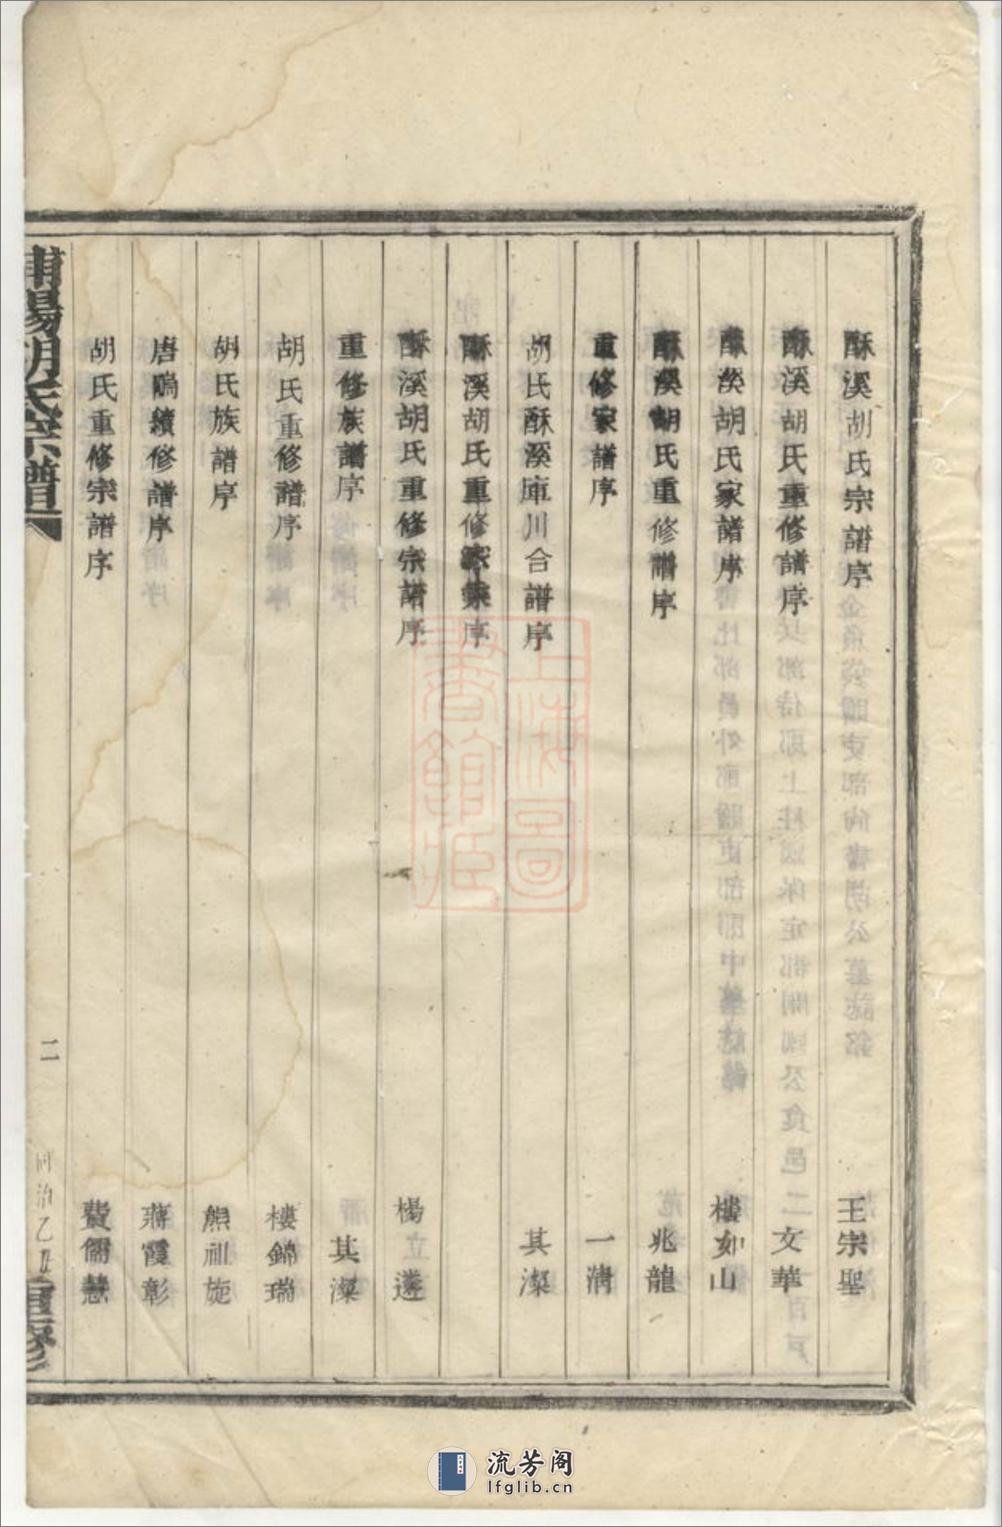 酥溪胡氏宗譜序 王宗聖
酥溪胡氏重修譜序 文華
酥溪胡氏家譜序 樓如山
酥溪胡氏重修譜序 兆龍
重修家譜序 一清
胡氏酥溪庫川合譜序 其澯
酥溪胡氏重修宗譜序
酥溪胡氏重修宗譜序 楊立遴
重修族譜序 其澯
胡氏重修譜序 樓錦瑞
胡氏族譜序 熊祖旎
唐鳴續修譜序 蔣霞彰
胡氏重修宗譜序 費儒慧
浦陽胡氏宗譜 二 同治乙丑重修
上海圖書館藏
流芳阁
lfglib.cn